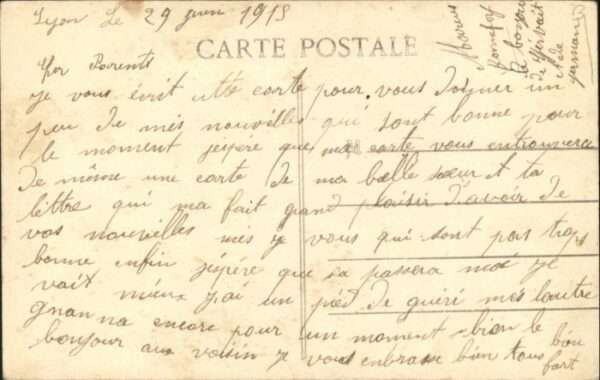 Lyon Le 29 juin 1915
CARTE POSTALE
Parents
je vous écrit cette carte pour vous donner un
peu de mes nouvelles qui sont bonne pour
le moment jespere que ma carte vous entrouvera
de même une carte de ma bœlle sœur et ta
lettre qui ma fait grand plaisir d'avoir de
vos nouvelles mes je vous qui sont pas trops
bonne enfin jéspére que sa passera moi je
vait mieux j'ai un pied de guéri mes l'autre
gnan na encore pour un moment bien le
bonjour aux voisin je vous enbrasse bien tous bien
fort
Marius
le bonjour
de